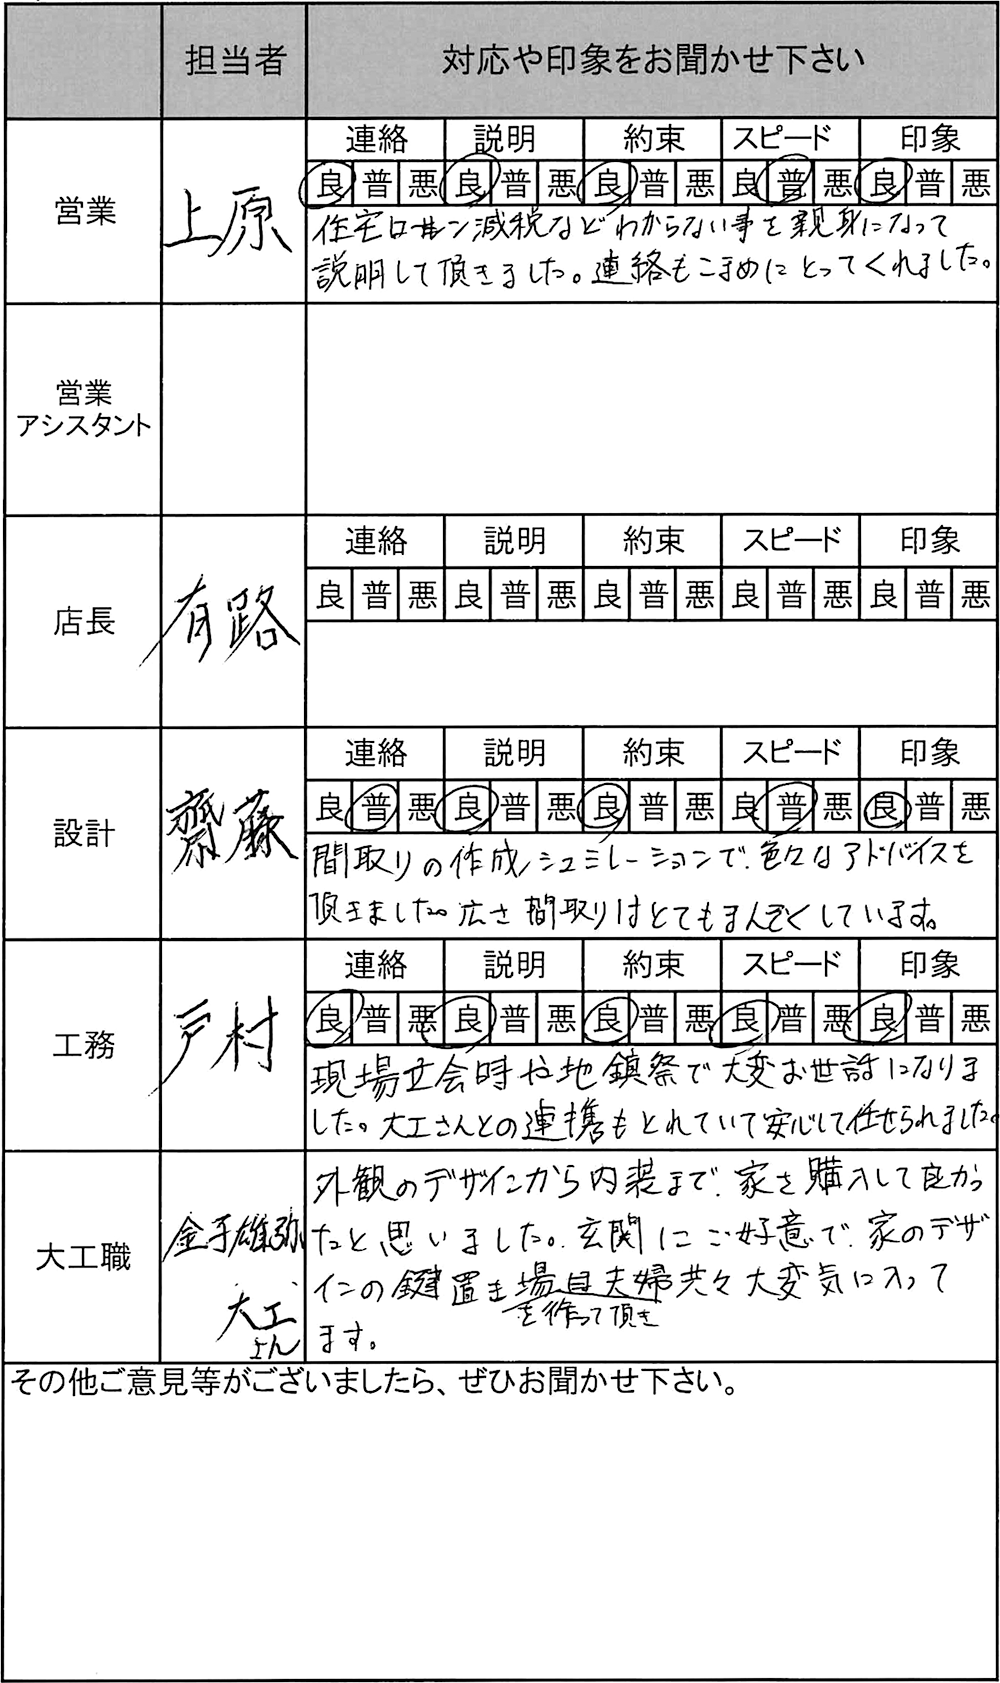 担当者 対応や印象をお聞かせ下さい
連絡 説明 約束 スピード 印象
良 普 悪 良 普 悪 良 普 悪 良 普 悪 良 普 悪
営業 上原
住宅ローン減税などわからない事を親身になって
説明して頂きました。連絡もこまめにとってくれました。
営業
アシスタント
連絡 説明 約束 スピード 印象
良 普 悪 良 普 悪 良 普 悪 良 普 悪 良 普 悪
店長 有路
連絡 説明 約束 スピード 印象
良 普 悪 良 普 悪 良 普 悪 良 普 悪 良 普 悪
設計 齋藤
間取りの作成シュミレーションで、色々なアドバイスを
頂きました。広さ間取りはとてもまんぞくしています。
連絡 説明 約束 スピード 印象
良 普 悪 良 普 悪 良 普 悪 良 普 悪 良 普 悪
工務 戸村
現場立会時や地鎮祭で大変お世話になりま
した。大工さんとの連携もとれていて安心して任せられました。
大工職 金子雄弥
大工
さん
外観のデザインから内装まで、家を購入して良かっ
たと思いました。玄関にご好意で、家のデザ
インの鍵置き場自夫婦共々大変気に入って
を作って頂き
ます。
その他ご意見等がございましたら、ぜひお聞かせ下さい。